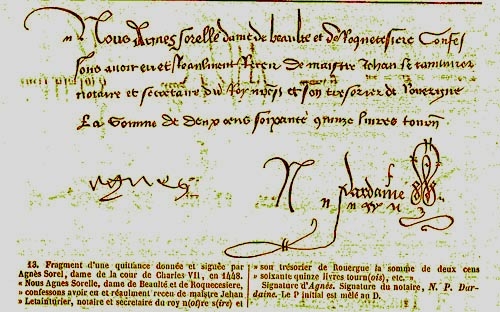 Nous Agnes sorelle dame de beaulte et de Roquecesiere Confes
sons avoir eu et Realment Receu de maistre Jehan le tainturier
notaire et secretaire du Roy et son tresorier de Rouergue
La Somme de deux cens soixante quinze livres tourn
agnes
N Pdardaine
13. Fragment d'une quittance donnée et signée par
Agnès Sorel, dame de la cour de Charles VII, en 1448.
« Nous Agnès Sorelle, dame de Beaulté et de Roquecesiere,
» confessons avoir eu et réaulment receu de maistre Jehan
» Letainturier, notaire et secretaire du roy n(ot)re s(ire) et
» son trésorier de Rouergue la somme de deux cens
» soixante quinze livres tourn(ois), etc. »
Signature d'Agnès. Signature du notaire, N. P. Dar-
daine. Le P initial est mêlé au D.